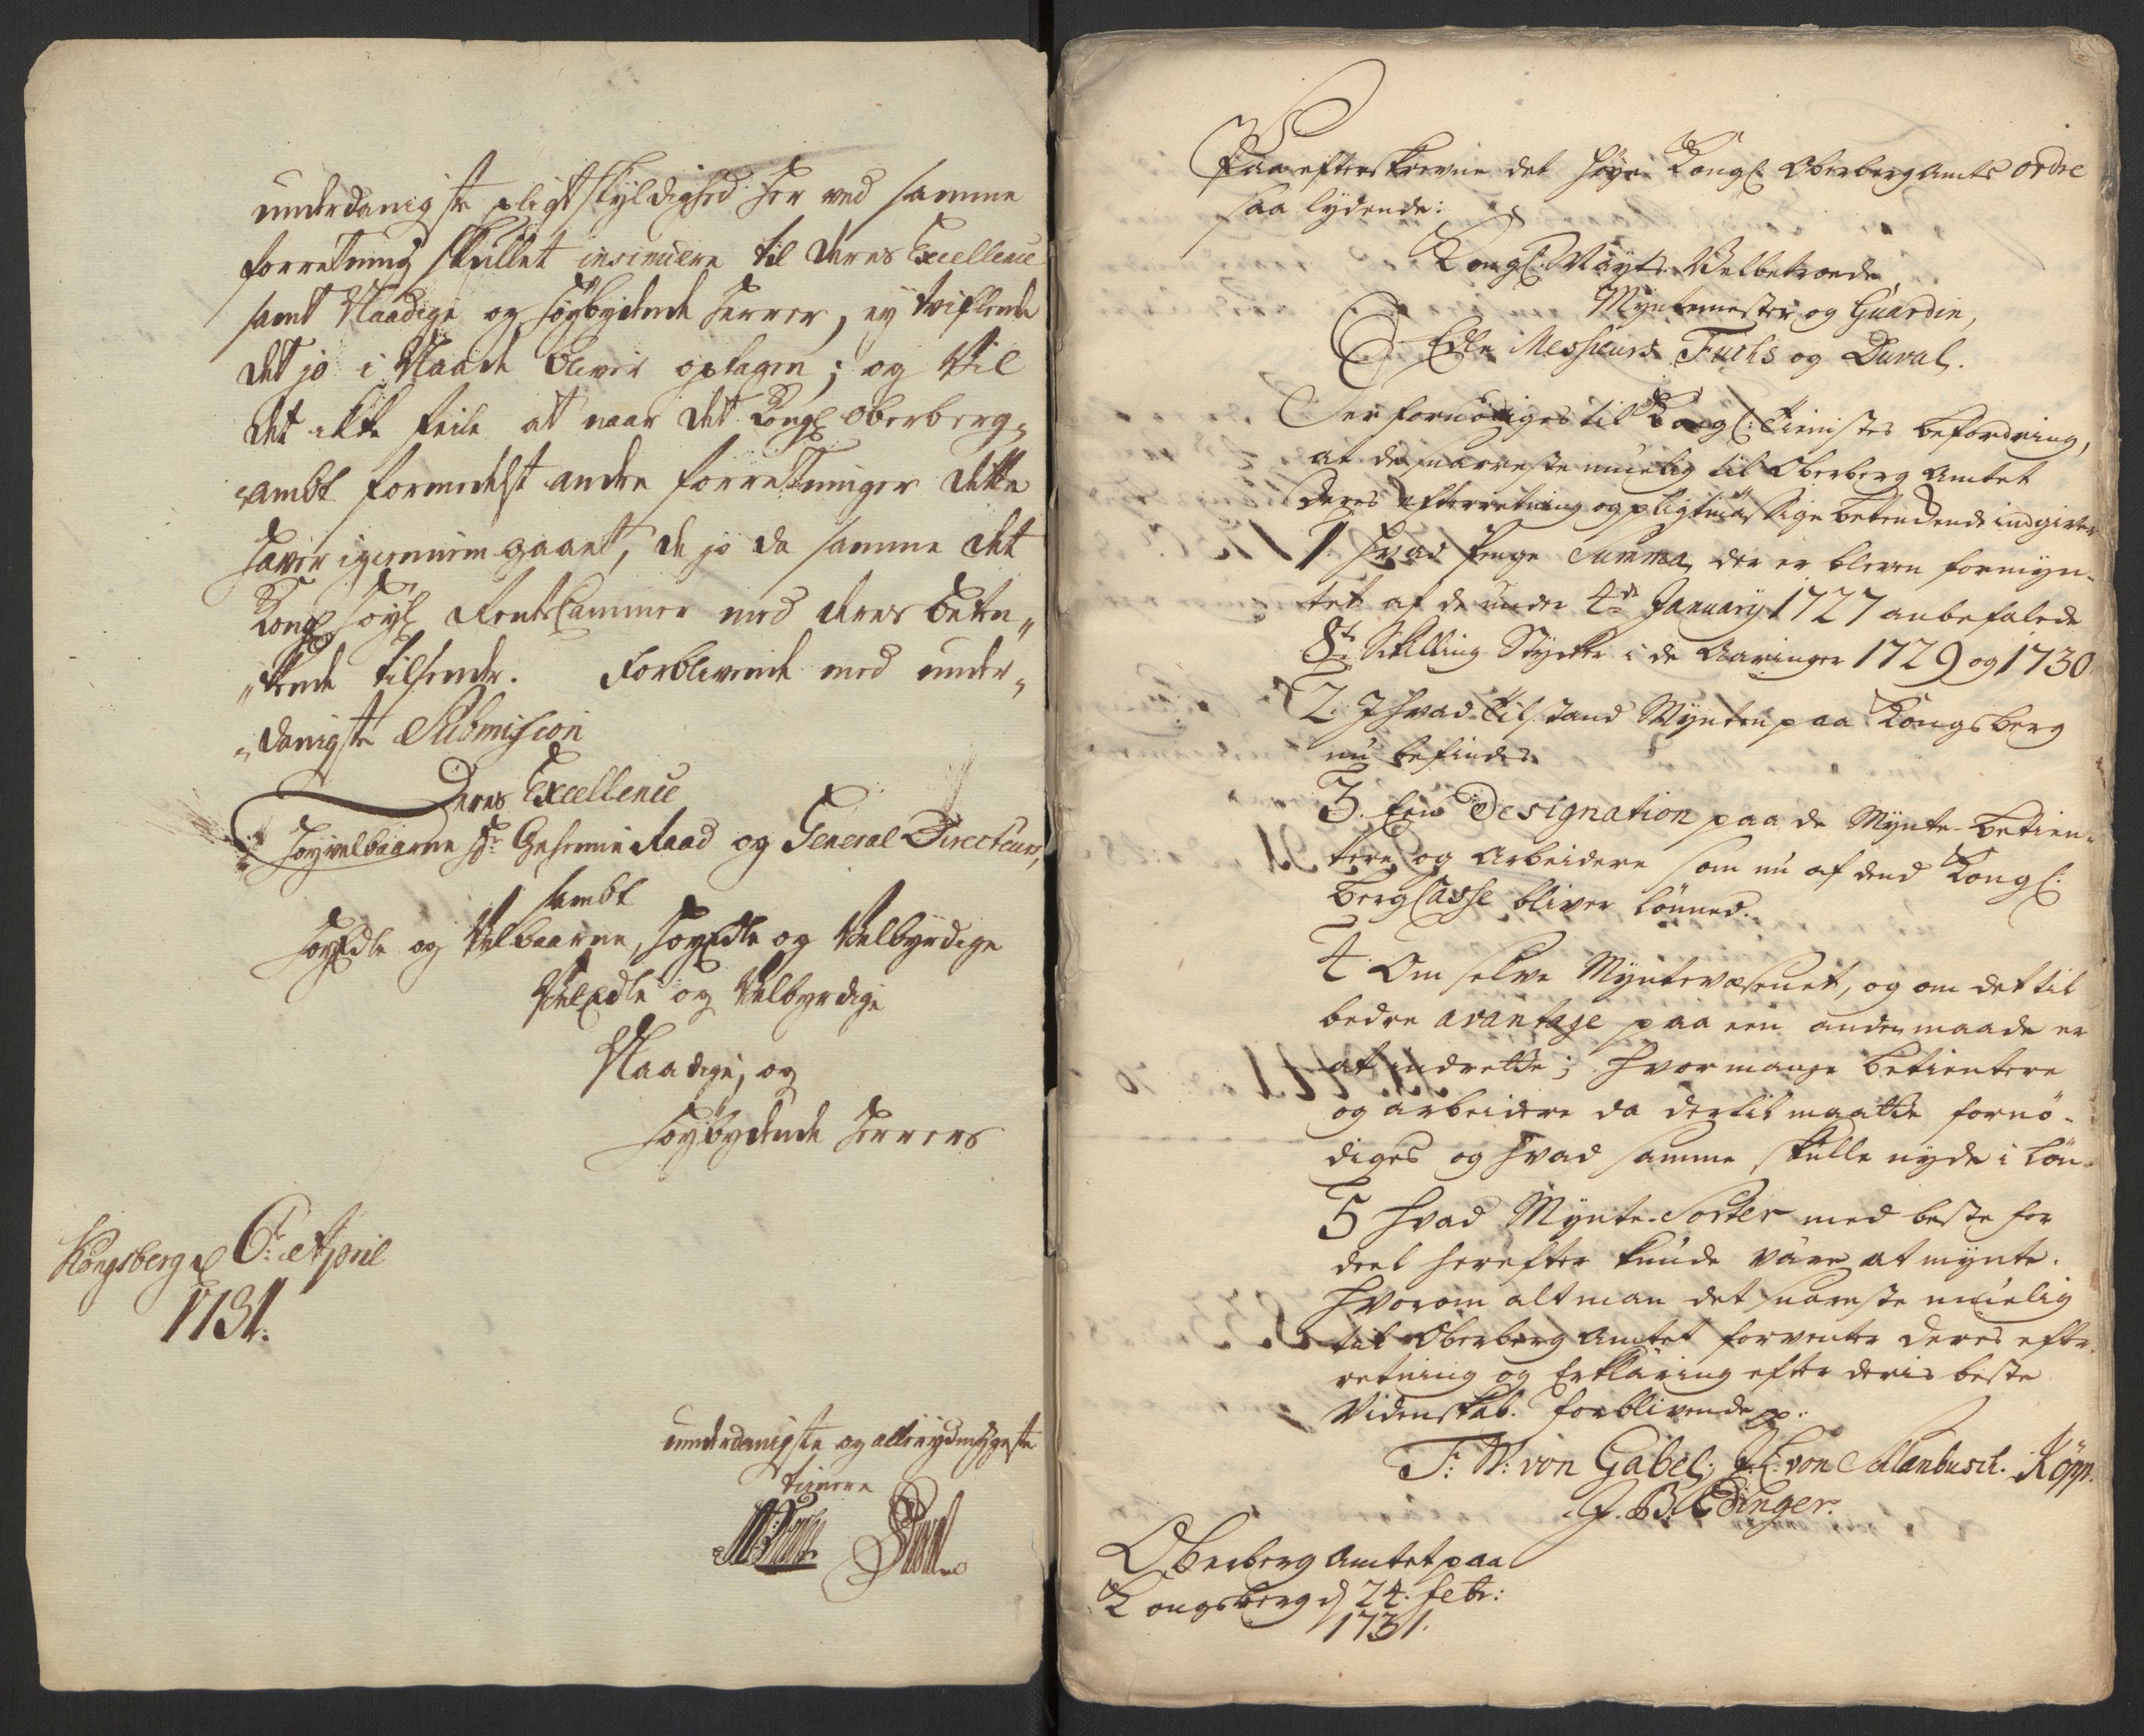 underdanigste pligt skyldighed her ved samme
forretning skullet insinuere til deres Excellence
samt Naadige og höybydende Herrer, ey tviflende
det jo i Naade bliver optagen; og vil
det ikke feile at naar det Kongl oberberg„
„ambt formedelst andre forretninger dette
haver igiennem gaaet, de jo da samme det
Kongl höyl RenteCammer med deres beten„
„kende tilsender. Forblivende med under„
„danigste Submission
Deres Excellence
Höyvelbaarne Hr Geheime Raad og General Directeur,
sambt
HöyEdle og Velbaarne, HöyEdle og Velbyrdige
VelEdle og Velbyrdige
Naadige, og
Höybydende Herrers
Kongsberg d 6t: April
1731.
underdanigste og allerydmygeste
tienere
Paaefterskrevne det høye Kongl: OberbergAmts ordre
saa lydende:
Kongl: Mayts Velbetroede
Myntemester og Guardin,
Edle Messieurs Fuchs og Duval.
Der fornödiges til Kongl: tienistes befordring,
at de snarreste muelig til Oberberg Amtet
deres efterretning og pligtmässige betenckende indgiver
1. Hvad Penge Summa der er bleven formyn-
tet af de under 4de January 1727 anbefalede
8te Skilling Stycker i de Aaringer 1729 og 1730
2. I hvad tilstand Mynten paa Kongsberg
nu befindes
3. Een Designation paa de Mynte-betien-
tere og Arbeidere som nu af dend Kongl:
BergCasse bliver lönned.
4. Om selve Myntevæsenet, og om det til
bedre avantage paa een anden maade er
at indrette; hvormange betientere
og arbeidere da dertil maatte fornö-
diges og hvad samme skulle nyde i Lön.
5 Hvad Mynte-Sorter med beste for
deel herefter kunde være at mynte.
Hvorom alt man det snareste muelig
til Oberberg Amtet forventer deres efter-
retning og Erklæring efter deris beste
Videnskab. forblivende p:
F: W: von Gabel; J. C: von Sollanbusch. Köpp.
J. B. Edinger.
Oberberg Amtet paa
Kongsberg d 24. febr:
1731.